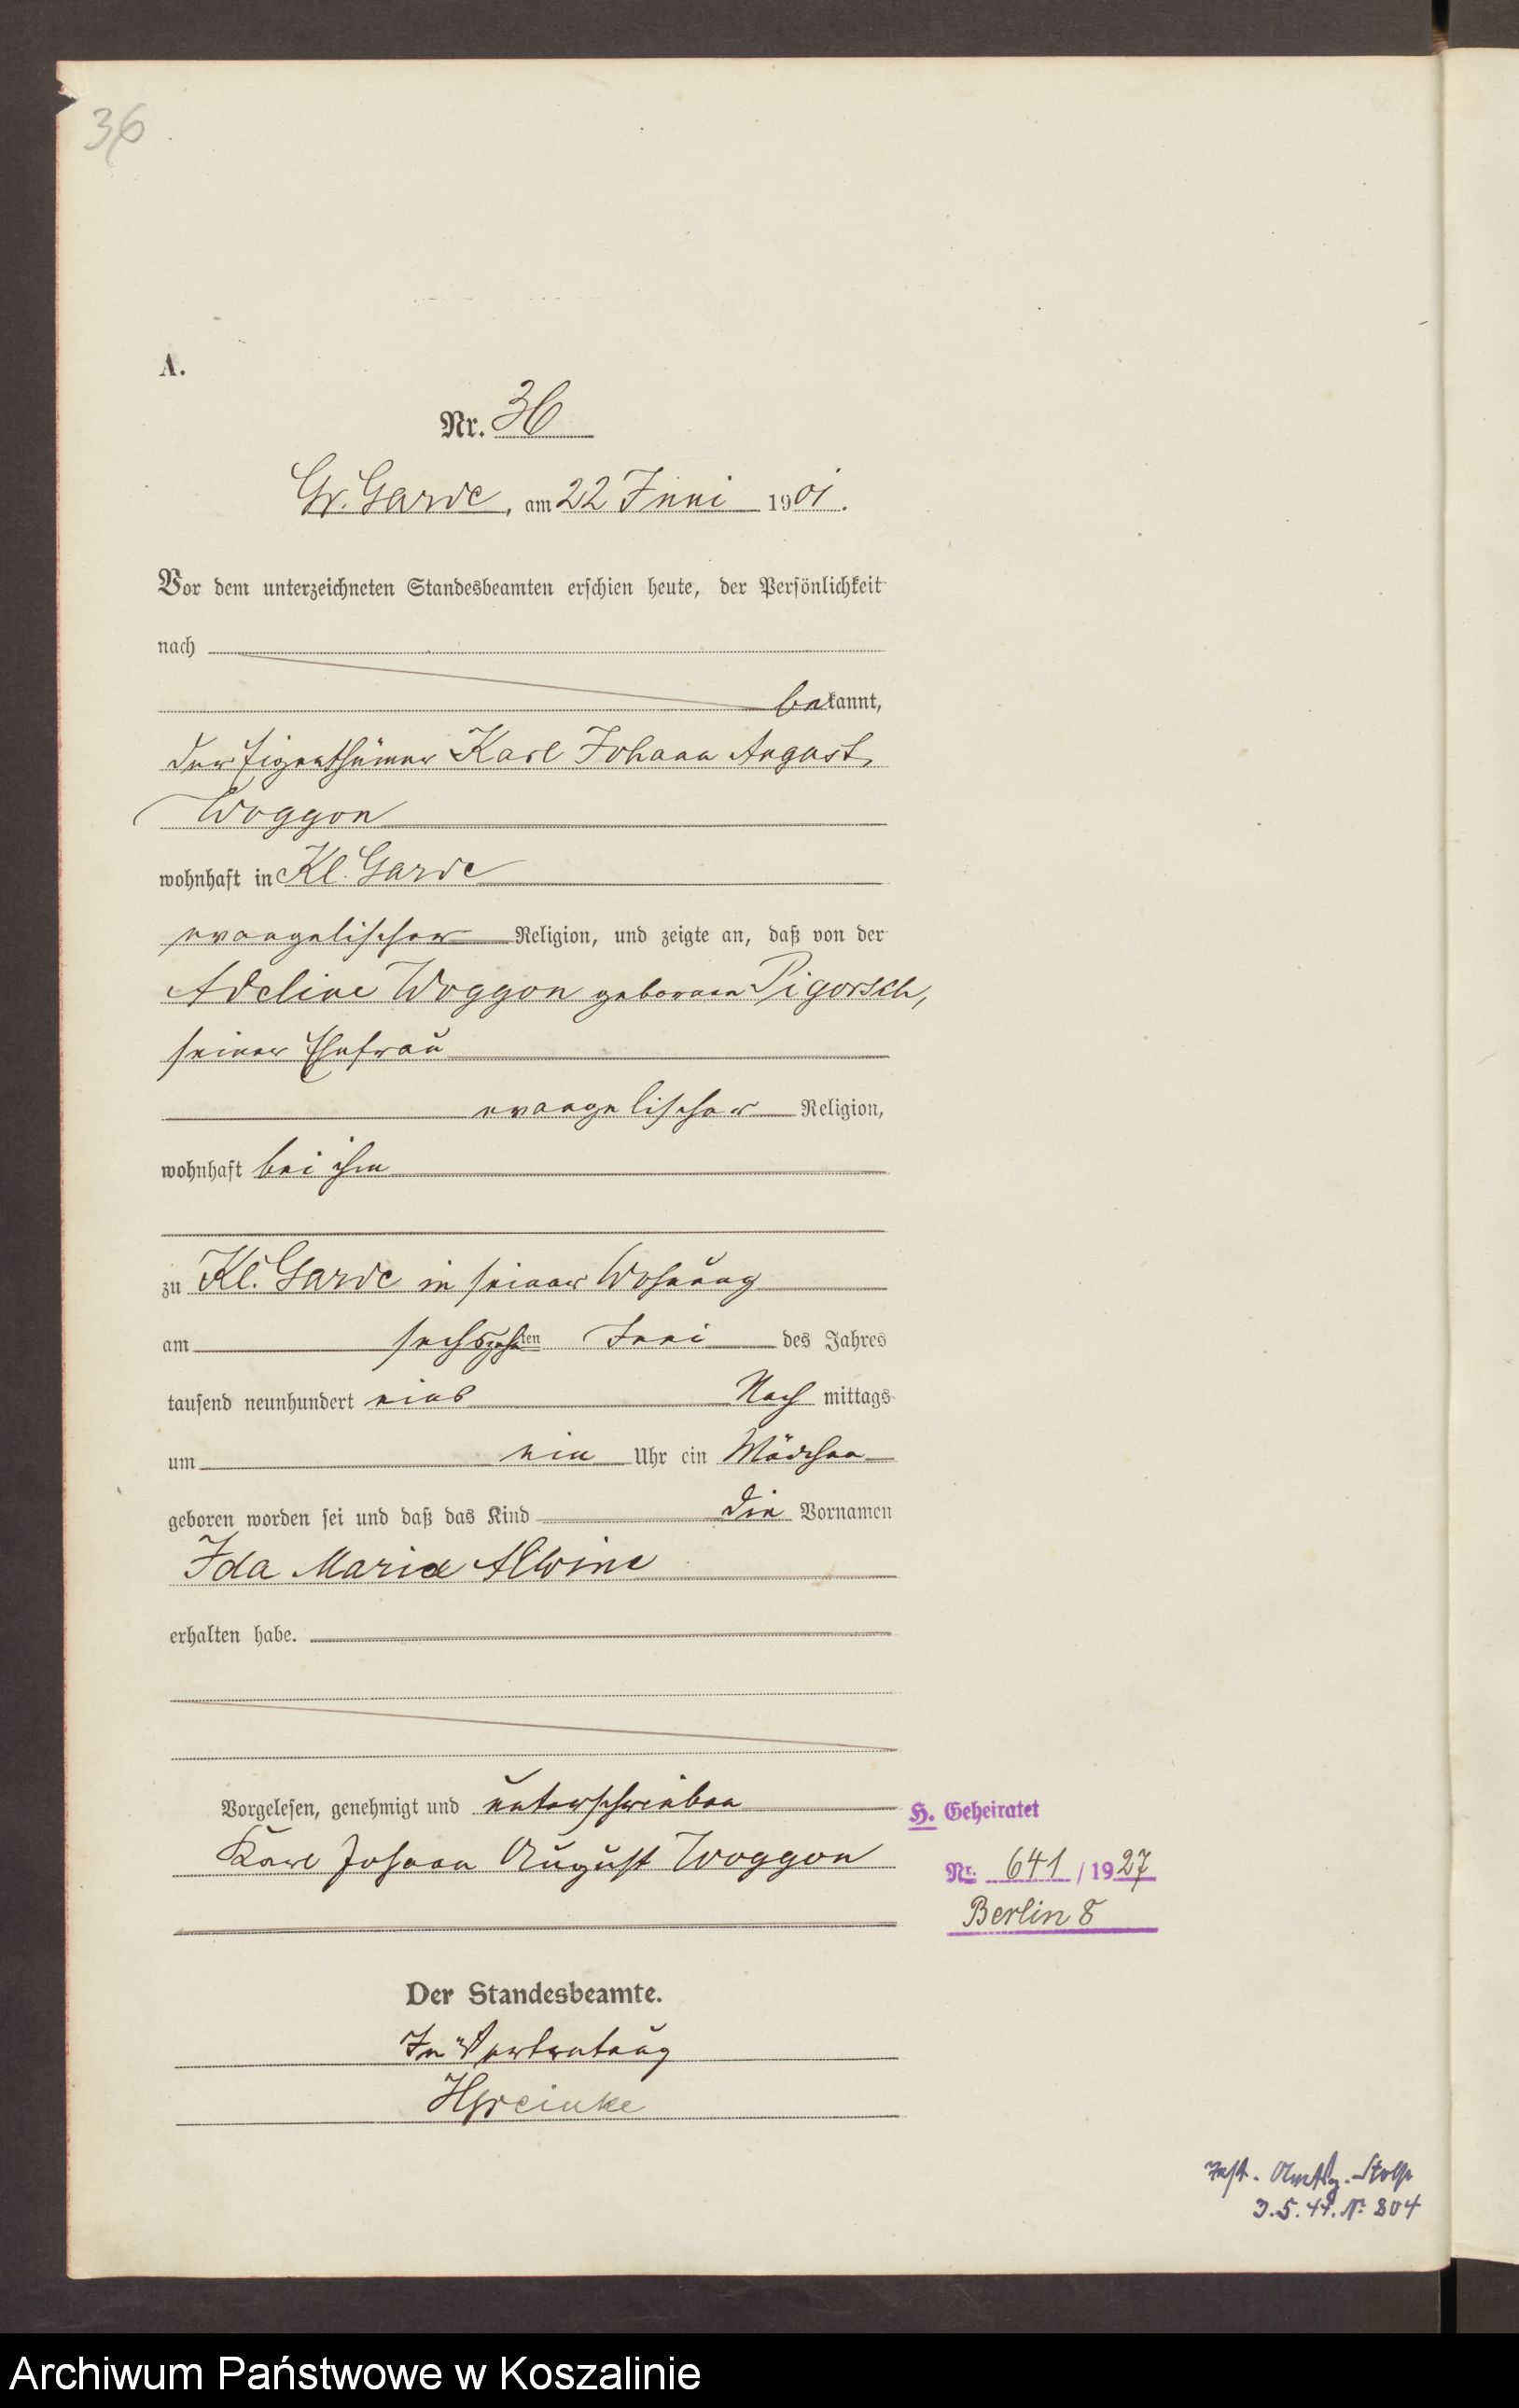 36
A.
Nr. 36
Gr. Garde, am 22 Juni 1901.
Vor dem unterzeichneten Standesbeamten erschien heute, der Persönlichkeit
nach
bekannt,
der Eigenthümer Karl Johann August
Woggon
wohnhaft in Kl. Garde
evangelischer Religion, und zeigte an, daß von der
Adeline Woggon geborenen Pigorsch,
seiner Ehefrau
evangelischer Religion,
wohnhaft bei ihm
zu Kl. Garde in seiner Wohnung
am sechszehnten Juni des Jahres
tausend neunhundert eins Nach mittags
um ein Uhr ein Mädchen
geboren worden sei und daß das Kind die Vornamen
Ida Maria Alwine
erhalten habe.
Vorgelesen, genehmigt und unterschrieben
Karl Johann August Woggon
H. Geheiratet
Nr. 641 / 1927
Berlin 8
Der Standesbeamte.
In Vertretung
3.5.44. Nr. 804
Archiwum Państwowe w Koszalinie